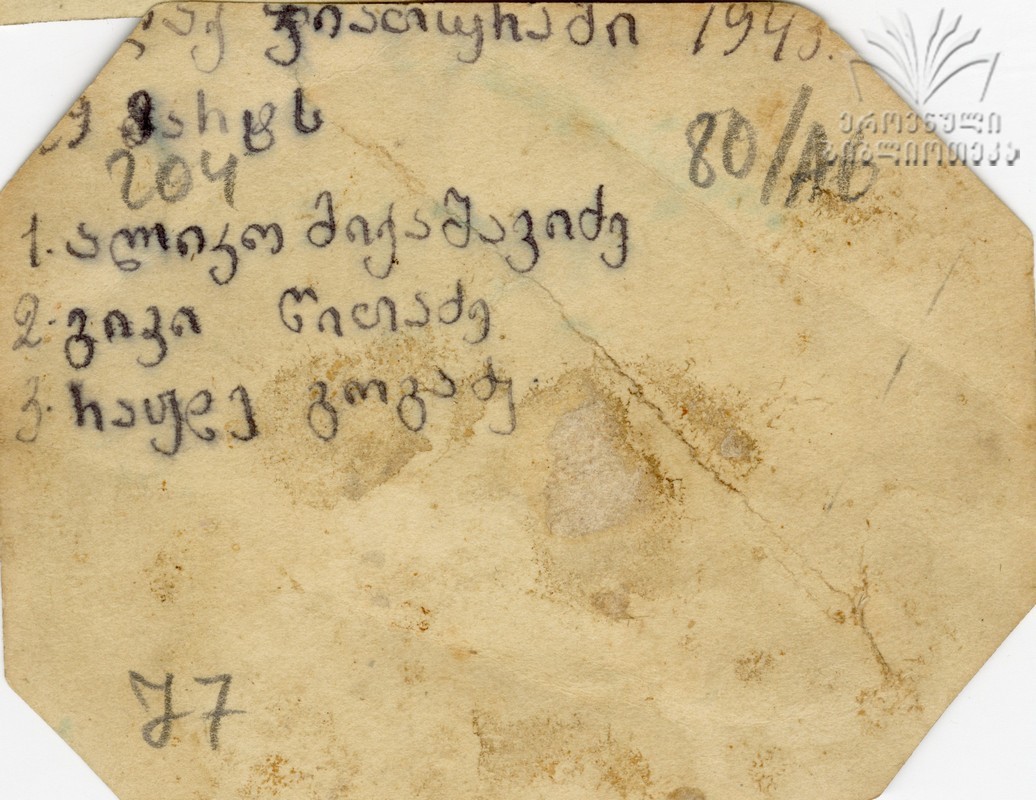 ქ ჭიათურაში 1945.
9 მარტს
80/
204
1. ალიკო მიქაშავიძე
2. გივი წილაძე
3. რაჟდე გოგაძე.
77
ეროვნული
ბიბლიოთეკა